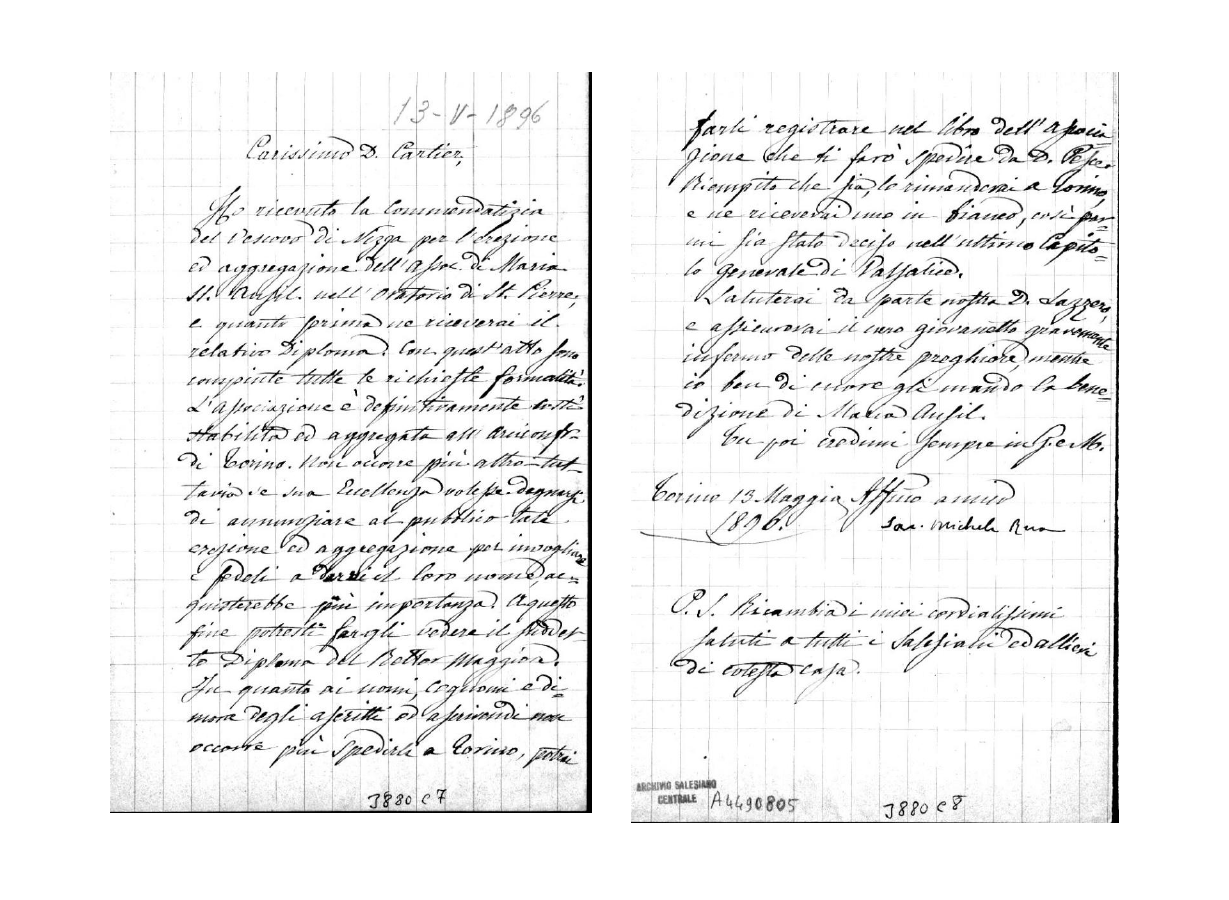 13-V-1896
Carissimo D. Cartier,
Ho ricevuto la Commendatizia
del Vescovo di Nizza per l'erezione
ed aggregazione dell'Assoc. di Maria
SS. Ausil. nell'Oratorio di St. Pierre,
e quanto prima ne riceverai il
relativo Diploma. Con quest'atto sono
compiute tutte le richieste formalità.
L'Associazione è definitivamente costì
stabilita ed aggregata all'Arciconfr.
di Torino. Non occorre più altro - tut-
tavia se sua Eccellenza volesse degnarsi
di annunziare al pubblico tale
erezione ed aggregazione per invogliare
i fedeli a darvi il loro nome, ac=
quisterebbe più importanza. A questo
fine potresti fargli vedere il suddet-
to Diploma del Rettor Maggiore.
In quanto ai nomi, cognomi e di=
mora degli ascritti ed ascrivendi non
occorre più spedirli a Torino, potrai
J880 c7
farli registrare nel libro dell'Associa=
zione che ti farò spedire da D. Pesce.
Riempito che sia, lo rimanderai a Torino,
e ne riceverai uno in bianco, così par=
mi sia stato deciso nell'ultimo Capito=
lo generale di Valsalice.
Saluterai da parte nostra D. Lazzero,
e assicurerai il caro giovanetto gravemente
infermo delle nostre preghiere, mentre
io ben di cuore gli mando la bene=
dizione di Maria Ausil.
Tu poi credimi sempre in G. e M.
Torino 13 Maggio Aff.mo amico
1896. Sac. Michele Rua
P. S. Ricambia i miei cordialissimi
saluti a tutti i Salesiani ed allievi
di cotesta casa.
ARCHIVIO SALESIANO
CENTRALE A4490805 J880 c8